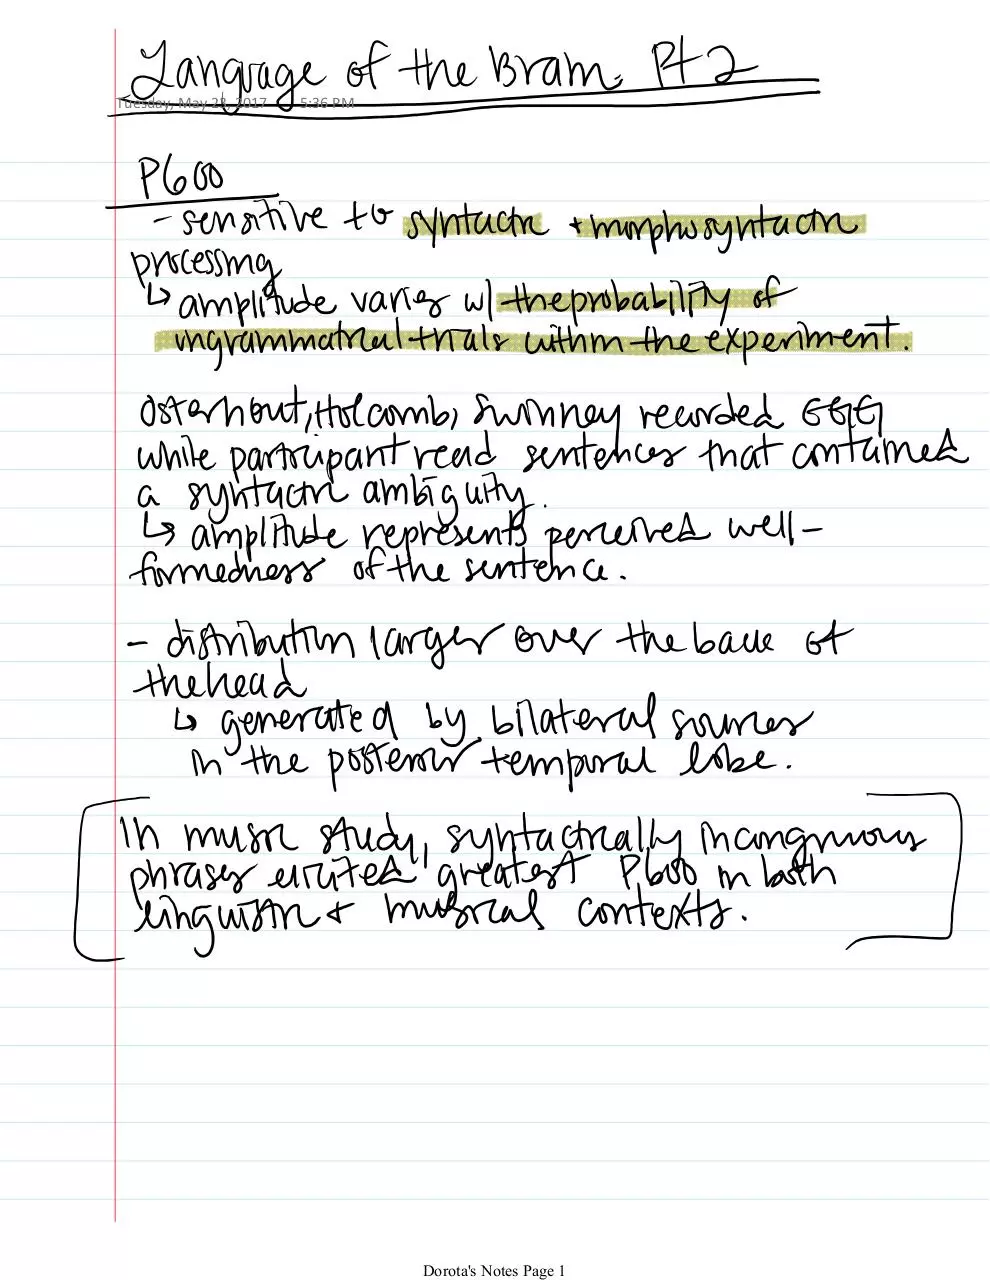 Language of the Brain, Pt 2
Tuesday, May 23, 2017 5:36 PM
P600
- sensitive to syntactic + morphosyntactic
processing
↳ amplitude varies w/ the probability of
ungrammatical trials within the experiment.
Osterhout, Holcomb, Swinney recorded EEG
while participant read sentences that contained
a syntactic ambiguity.
↳ amplitude represents perceived well-
formedness of the sentence.
- distribution larger over the back of
the head
↳ generated by bilateral sources
in the posterior temporal lobe.
In music study, syntactically incongruous
phrases elicited greatest P600 in both
linguistic + musical contexts.
Dorota's Notes Page 1